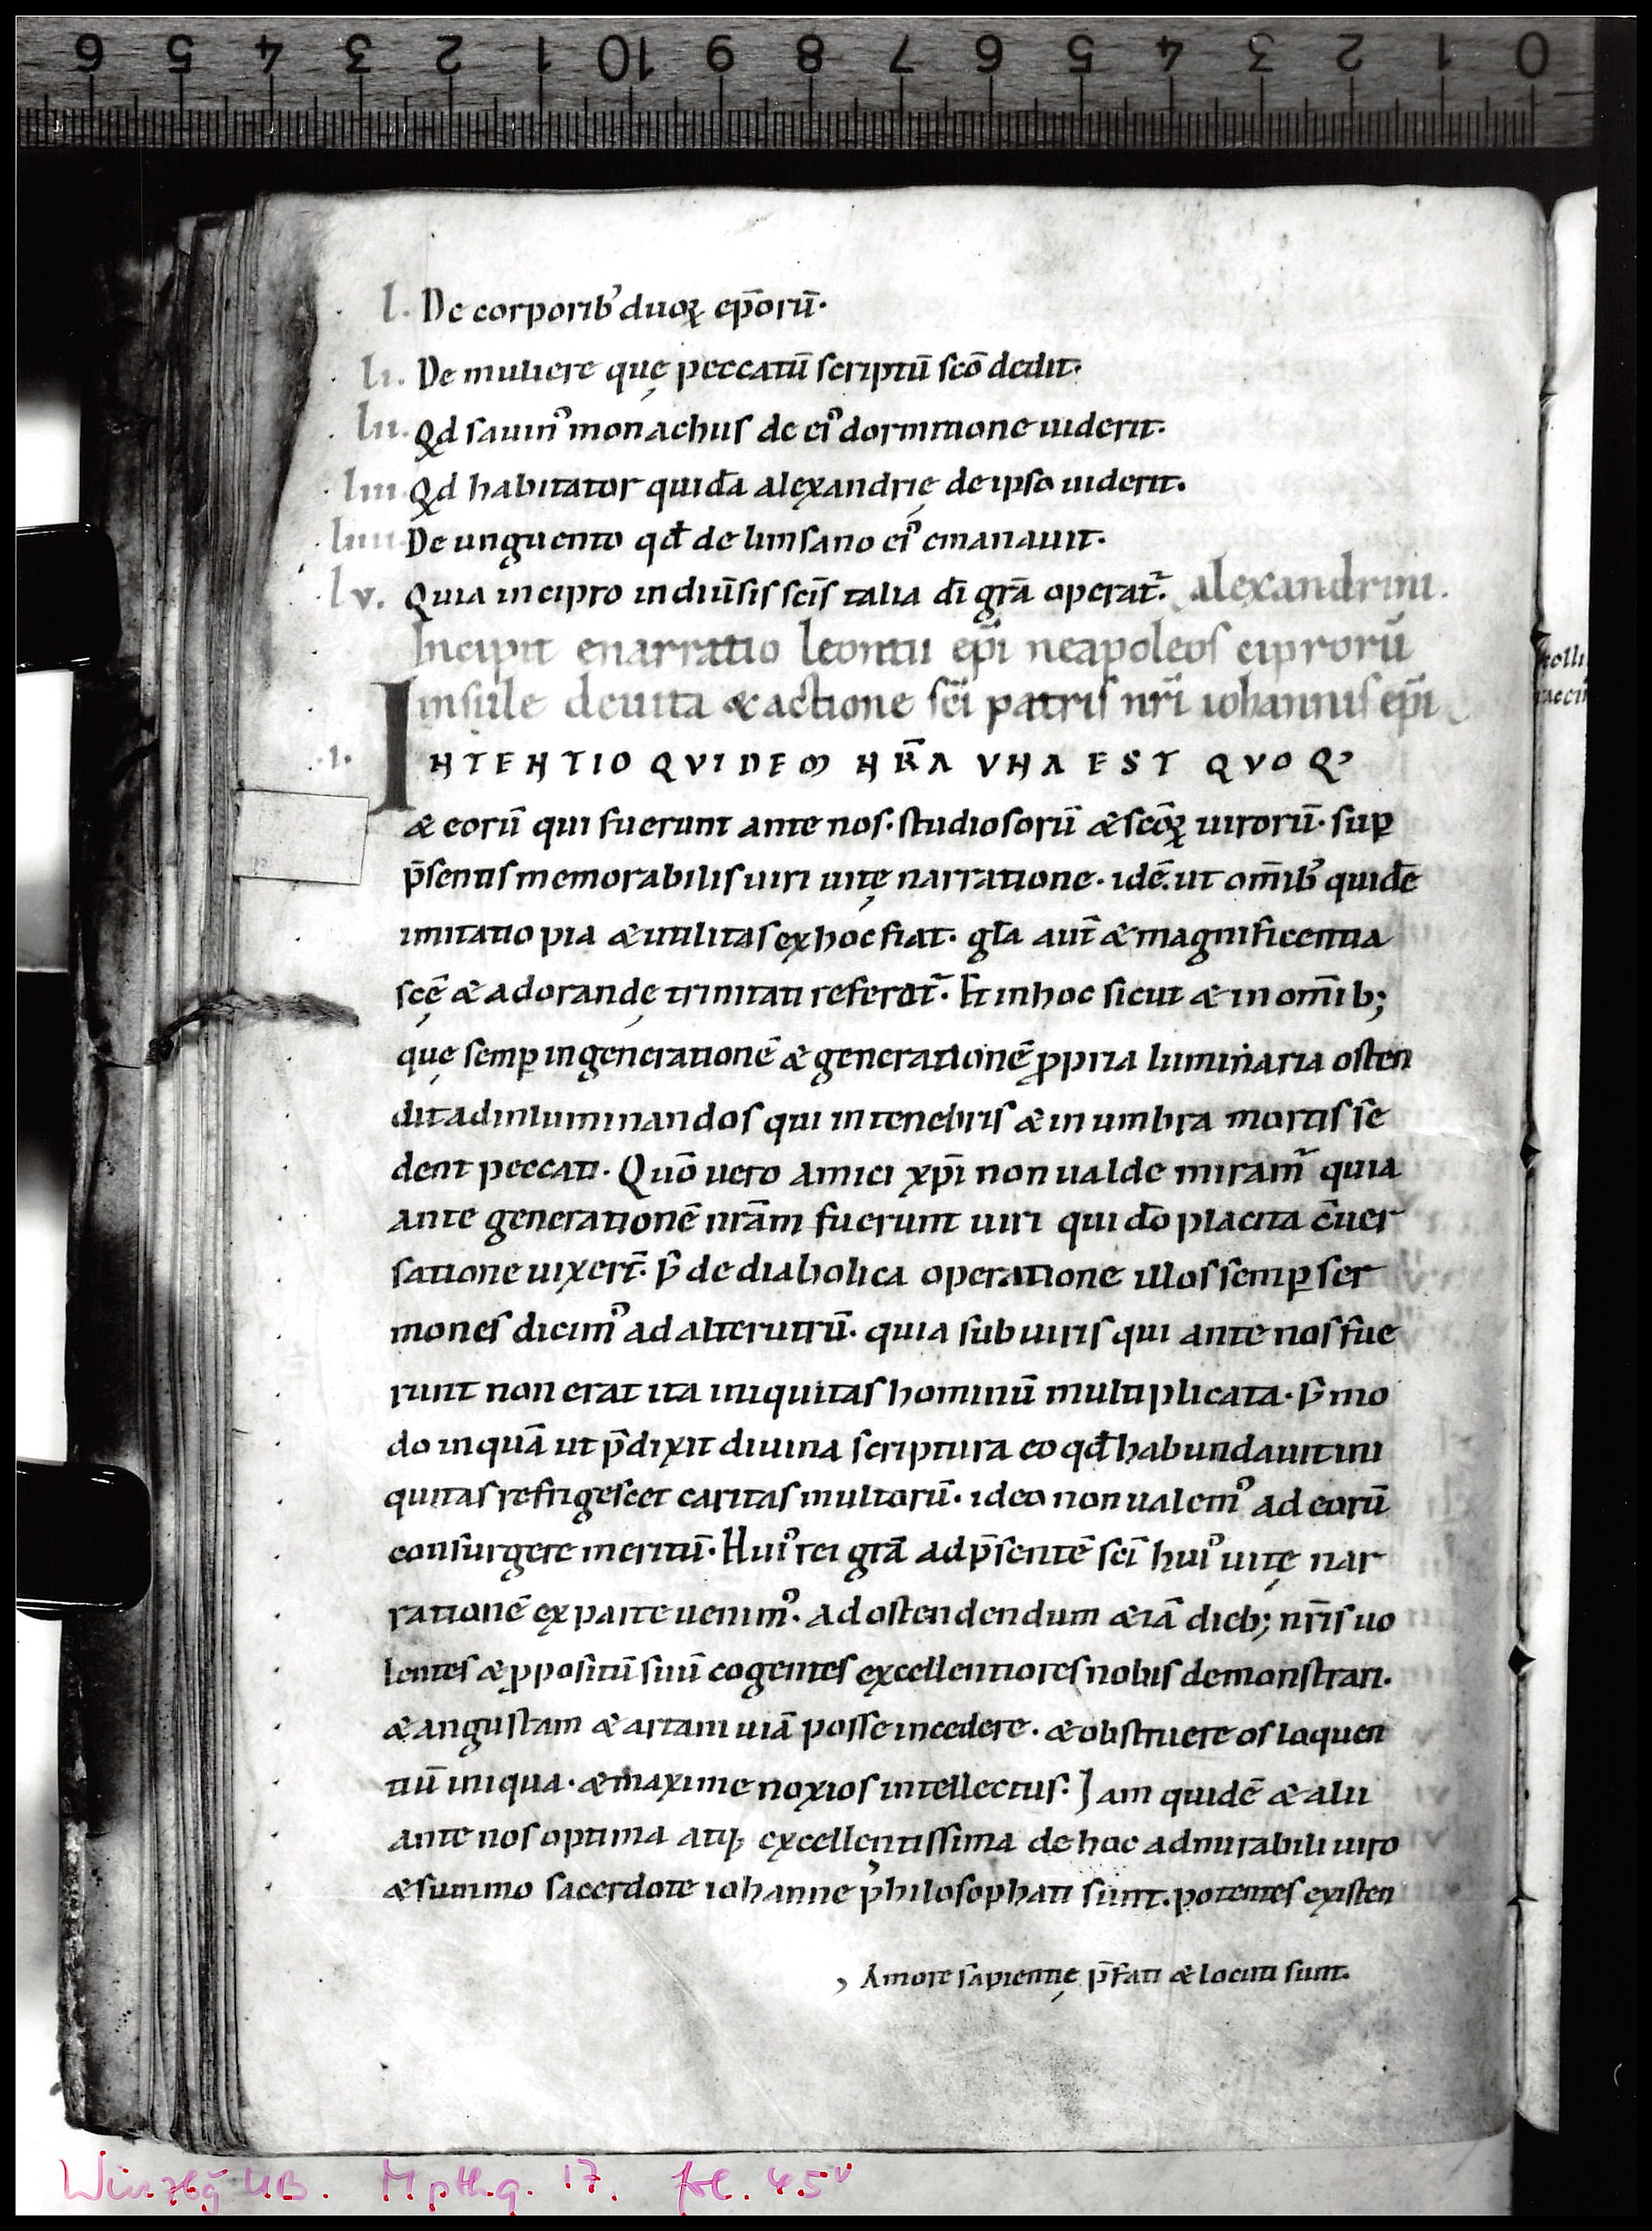 6 5 4 3 2 1 10 9 8 7 6 5 4 3 2 1 0
l. De corporib' duoꝝ ep̄orū·
li. De muliere quę peccatū scriptū sc̄o dedit·
lii. Qd sauin᾽ monachus de ei᾽ dormitione uiderit·
liii Qd habitator quidā alexandrię de ipso uiderit.
liiii De unguento qđ de limsano ei᾽ emanauit·
lv. Quia incipro indiuīsis sc̄is talia dī grā operat̄. alexandrini.
Incipit enarratio leontii ep̄i neapoleos cipriorū
insule deuita & actione sc̄i patris nr̄i iohannis ep̄i
.1. INTENTIO QVIDEM NR̄A VNA EST QVOQ᾽
& eorū qui fuerunt ante nos· studiosorū & sc̄oꝝ uirorū· suꝑ
p̄sentis memorabilis uiri uitę narratione· idē. ut om̄ib᾽ quidē
imitatio pia & utilitas ex hoc fiat· gła aut̄ & magnificentia
sc̄ę & adorandę trinitati referat̄· Et inhoc sicut & in om̄ib;
quę semꝑ ingenerationē & generationē ꝓpria luminaria osten
dit adinluminandos qui intenebris & in umbra mortis se
dent peccati· Quō uero amici xp̄i non ualde miram̄ quia
ante generationē nrām fuerunt uiri qui dō placita c̄uer
satione uixer̄t· S; de diabolica operatione illos semꝑ ser
mones dicim᾽ ad alterutrū· quia sub uiris qui ante nos fue
runt non erat ita iniquitas hominū multiplicata· S; mo
do inquā ut p̄dixit diuina scriptura eo qđ habundauit ini
quitas refrigescet caritas multorū· ideo non ualem᾽ ad eorū
consurgere meritū· Hui᾽ rei grā ad p̄sentē sc̄i hui᾽ uitę nar
rationē ex parte uenim᾽. ad ostendendum & iā dieb; nr̄is uo
lentes & ꝓpositū suū cogentes excellentiores nobis demonstrari.
& angustam & artam uiā posse incedere· & obstruere os loquen
tiū iniqua· & maxime noxios intellectus· Iam quidē & alii
ante nos optima atq; excellentissima de hoc admirabili uiro
& summo sacerdote iohanne philosophati sunt. potentes existen
, Amore sapientię p̄fati & locuti sunt.
Würzbg UB. M p th q. 17. fol. 45v